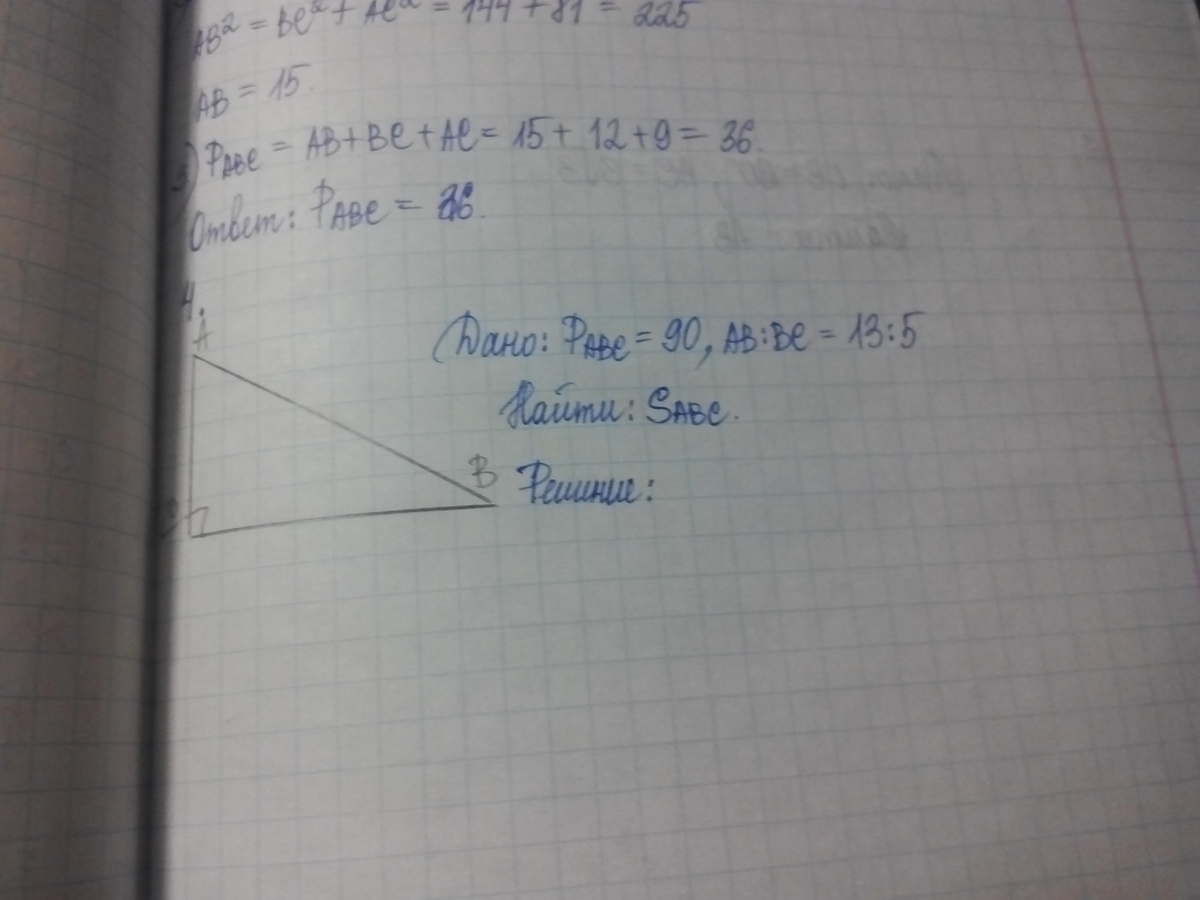 AB² = BC² + AC² = 144 + 81 = 225
AB = 15.
3) PABC = AB + BC + AC = 15 + 12 + 9 = 36.
Ответ: PABC = 36.
4.
A
Дано: PABC = 90, AB:BC = 13:5
Найти: SABC.
B
Решиние:
C